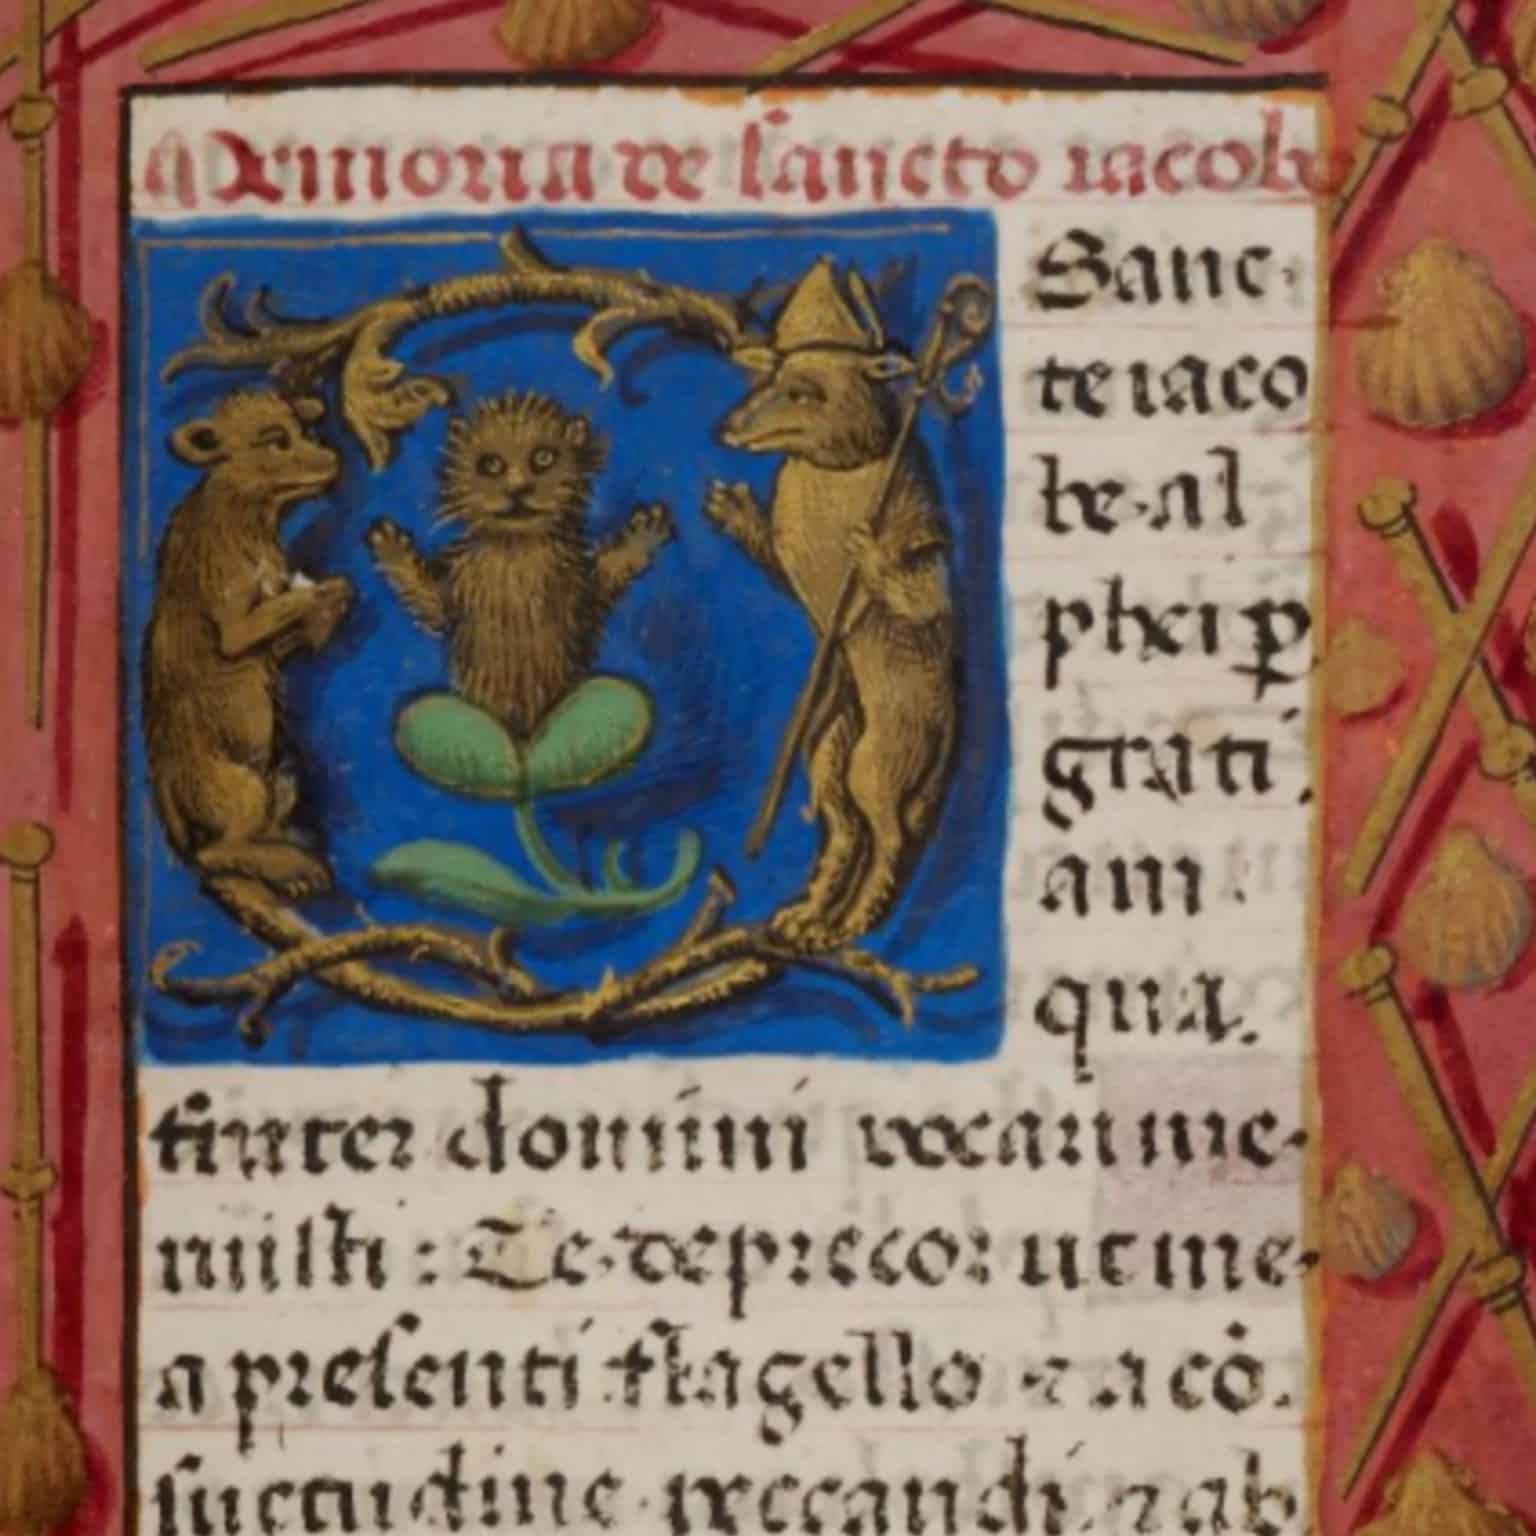 Memoria de sancto iacobo
Sanc-
te iaco
be al
phei p̱
grati
am
qua
fĩ inter domini vocari me-
ruisti : Te deprecor ut me
a presenti flagello ⁊ a cõ
suetudine peccandi ⁊ ab